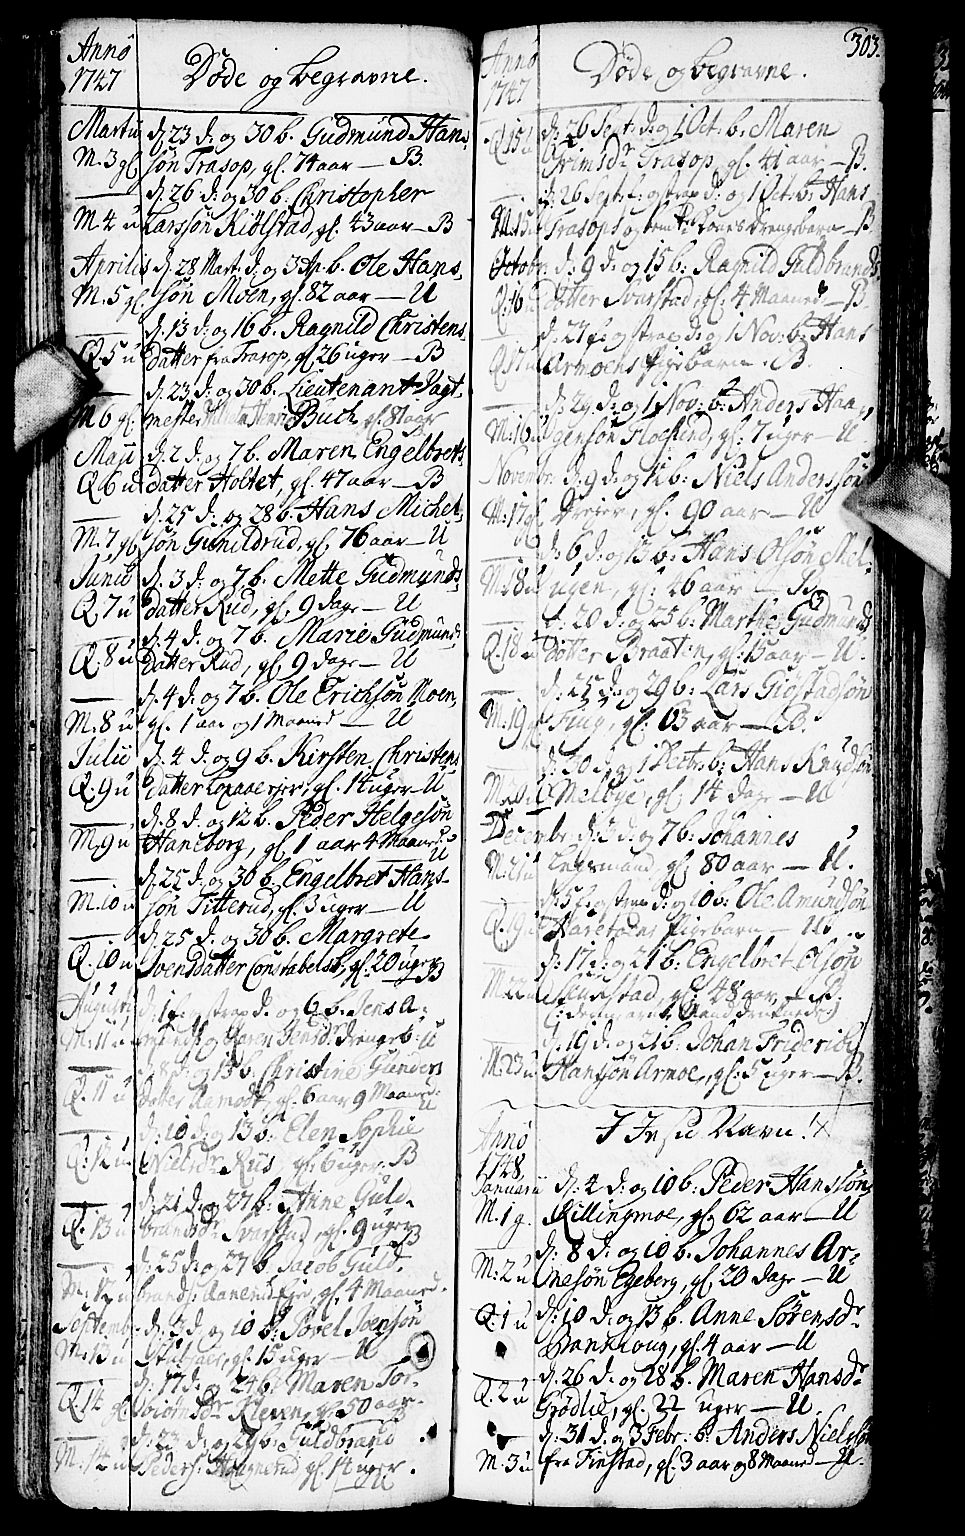 Anno
1747
Døde og begravne.
Martii d. 23 d. og 30 b. Gudmund Hans
M. 3 gl. søn Trasop, gl. 74 aar — B
d. 26 d. og 30 b. Christopher
M 4 u Larssøn Kiølstad, gl. 43 aar — B
Aprilis d. 28 Mart. d. og 3 Ap. b. Ole Hans
M. 5 gl. søn Moen, gl. 82 aar — U
d. 13 d. og 16 b. Ragnild Christens
Q. 5 u datter fra Trasop, gl. 26 uger — B
d. 23 d. og 30 b. Lieutenant Vagt
M 6 gl. mester Buch, gl.
Maji d. 2 d. og 7 b. Maren Engelbrets
Q 6 u datter Holtet, gl. 47 aar — B
d. 25 d. og 28 b. Hans Michel
M. 7 gl. søn Gunildrud, gl. 76 aar — U
Junii d. 3 d. og 7 b. Mette Gudmunds
Q. 7 u datter Rud, gl. 9 dage — U
d. 4 d. og 7 b. Marie Gudmunds
Q. 8 u datter Rud, gl. 9 dage — U
d. 4 d. og 7 b. Ole Erichsøn Moen,
M: 8 u gl. 1 aar og 1 Maaned — U
Julii d. 4 d. og 9 b. Kirsten Christens
Q. 9 u datter gl. 14 uger — U
d. 8 d. og 12 b. Peder Helgesøn
M. 9 u Haneborg, gl. 1 aar 4 Maaneder
U
d. 25 d. og 30 b. Engelbret Hans
M. 10 u søn Titterud, gl. 3 uger — U
d. 25 d. og 30 b. Margrete
Q. 10 u Svendsdatter Constabelst, gl. 20 uger B
Augusti d. 1 og strax d. og 6 b. Jens
M: 11 u og Karen Jensdr. Drengeb: U
d. 8 d. og 13 b. Christine Gunders
Q. 11 u datter Ramodt, gl. 6 aar 9 Maaned:
U
d. 10 d. og 13 b. Elen Sophie
Q: 12 u Nielsdr. Riis, gl. 6 uger. B
d. 21 d. og 27 b. Anne Guld
Q. 13 u brandsdr. Svarstad, gl. 9 uger B
d. 25 d. og 27 b. Jacob Guld
M: 12 u brands: gl. 4 Maaned.
Septembr. d. 3 d. og 10 b. Povel Joensøn
M. 13 u gl. 15 uger — U
d. 17 d. og 24 b. Maren Tor
Q. 14 gl biørnsdr. Kleven, gl. 50 aar.
d. 23 d. og 29 b. Guldbrand
M. 14 u Peders: gl. 14 uger.
U
303.
Anno
1747
Døde og begravne.
d. 26 Sept. d. og 1 Oct. b. Maren
Q. 15 u Grimsdr. Trasop, gl. 41 aar — B.
d. 26 Septr. og strax d. og 1 Oct. b. Hans
M. 15 u Trasops og Drengebarn — B
Octobr. d. 9 d. og 15 b: Ragnild Guldbrands
Q. 16 u datter Svarstad, gl. 4 Maaned — B
d. 27 f. og strax d. og 1 Nov. b. Hans
Q 17 u Armoens Pigebarn. B.
d. 29 d. og 1 Nov: b. Anders Haa
M: 16 u gensøn gl. 7 uger — U
Novembr. d. 9 d. og 12 b: Niels Anderssøn
M: 17 gl. Drejer, gl. 90 aar — U
d. 6 d. og 13 b. Hans Olsøn Mel
M: 18 u ugen, gl. 46 aar
d. 20 d. og 25 b. Marthe Gudmunds
Q. 18 u datter Braaten, gl. 15 aar — U.
d. 25 d. og 29 b. Lars Giøstafsøn
M: 19 gl. gl. 63 aar — B.
d. 30 d. og 1 Dectr. b: Hans Knudsøn
M: 20 u Melbye, gl. 14 dage — U
Decembr. d. 3 d. og 7 b. Johannes
M. 21 u gl. 80 aar — U.
d. 5 f. og strax d. og 10 b: Ole Amundsøn
Q. 19 u Pigebarn — U.
d. 17 d. og 21 b: Engelbret Olsøn
M. 22 u gl. 48 aar, — B.
d. 19 d. og 21 b: Johan Friderich
M: 23 u Hansøn Armoe, gl. 5 uger — B.
Anno
1748
I Jesu Navn!
Januarii d. 4 d. og 10 b: Peder Hanssøn
M. 1 g. Killingmoe, gl. 62 aar — U
d. 8 d. og 10 b. Johannes Ar
M: 2 u nesøn Egeberg, gl. 20 dage — U
d. 10 d. og 13 b. Anne Sørensdr.
Q. 1 u gl. 4 aar — U
d. 26 d. og 28 b. Maren Hansdr.
Q. 2 u Grødlie, gl. 32 uger — U.
d. 31 d. og 3 Febr: b. Anders Nielssøn
M: 3 u fra Finstad, gl. 3 aar og 8 Maaned — U.